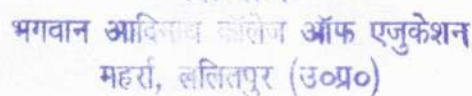 भगवान आदिनाथ कॉलेज ऑफ एजुकेशन
महर्रा, ललितपुर (उ०प्र०)